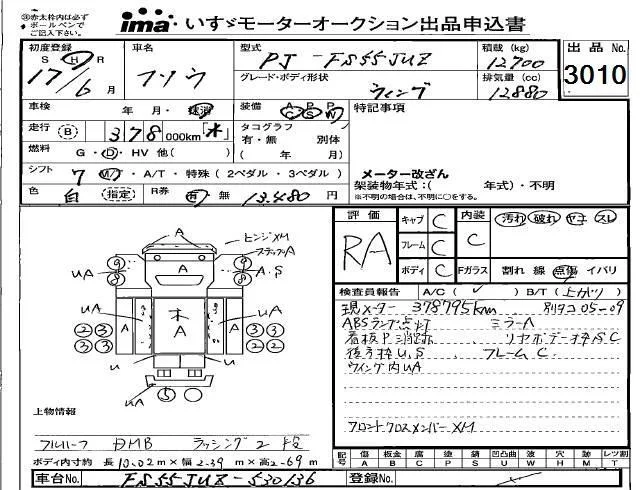 ※赤太枠内は必ずボールペンでご記入下さい。
ima いすゞモーターオークション出品申込書
初度登録 S H R 17/6月
車名 フソウ
型式 PJ-FS55JUZ
積載(kg) 12700
グレード・ボディ形状 ウィング
排気量(cc) 12880
出品No. 3010
車検 年 月・抹消
装備 A C P S P W
特記事項
走行 B 378,000km「木」
タコグラフ 有・無 別体 ( 年 月)
燃料 G・D・HV 他( )
シフト 7 M/T・A/T・特殊(2ペダル・3ペダル)
メーター改ざん
架装物年式:( 年式)・不明
※不明の場合は、不明に○をする。
色 白 指定
R券 有・無 13,480円
評価 RA
キャブ C
フレーム C
ボディ C
内装 C
汚れ 破れ ヤニ スレ
Fガラス 割れ 線 点傷 イバリ
検査員報告 A/C( ✓ ) B/T( 上がり )
現メーター 378795km 別タコ05-09
ABSランプ点灯 ミラーA
看板P消跡 リヤボデー枠S,C
後ヨ枠U,S フレームC
ウイング内UA
フロントクロスメンバーXM
A ヒンジXM
A
A,S
UA
UA
UA
木 A
A A
U U
UA
9 8 9 8
2 3 3 3
3 3 2 2
5
上物情報
フルハーフ DMB ラッシング2段
ボディ内寸約 長10.02m×幅2.39m×高2.69m
記号 傷A 板金B 腐C 塗P 錆S 凹凸曲U 波W 穴H 無M レツ割T
車台No. FS55JUZ-530136
登録No.